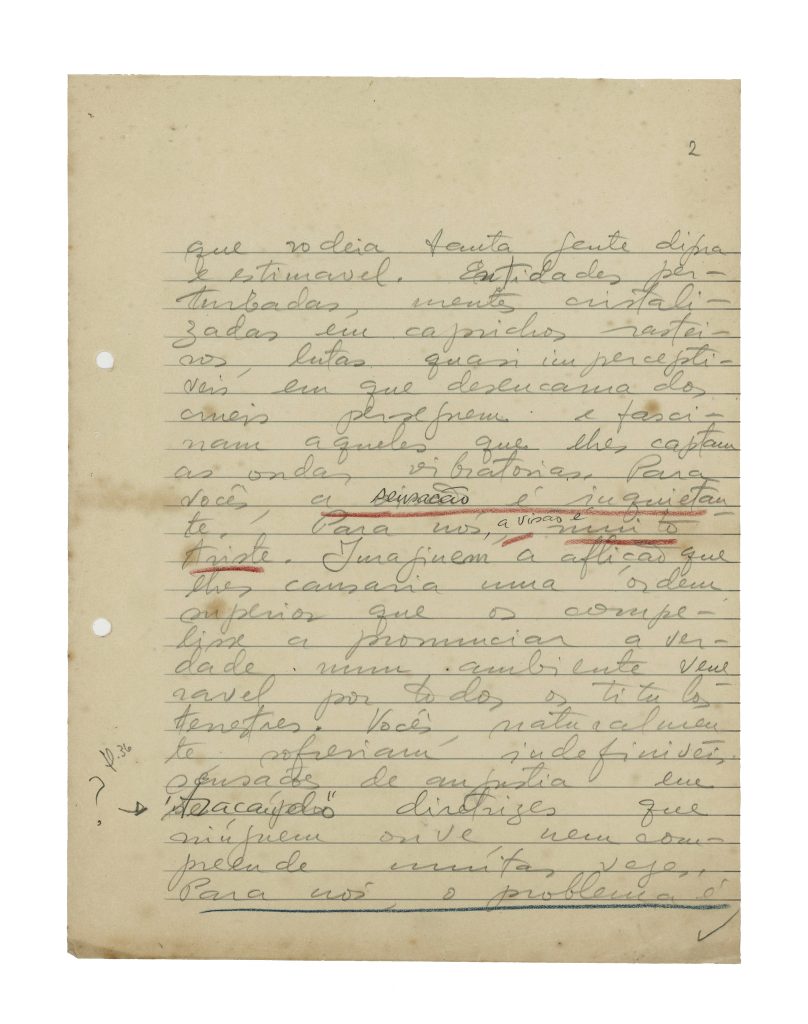 2
que rodeia tanta gente digna
e estimavel. Entidades per-
turbadas, mentes cristali-
zadas em caprichos rastei-
ros, lutas quasi impercepti-
veis em que desencarnados
crueis perseguem e fasci-
nam aqueles que lhes captam
as ondas vibratorias. Para
vocês, a sensação é inquietan-
te. Para nós, a visão é muito
triste. Imaginem a aflição que
lhes causaria uma ordem
superior que os compe-
lisse a pronunciar a ver-
dade num ambiente vene
ravel por todos os titulos
terrestres. Vocês, naturalmen
te sofreriam indefiniveis
sensações de angustia em
diretrizes que
ninguem ouve, nem com-
preende muitas vezes.
Para nós, o problema é